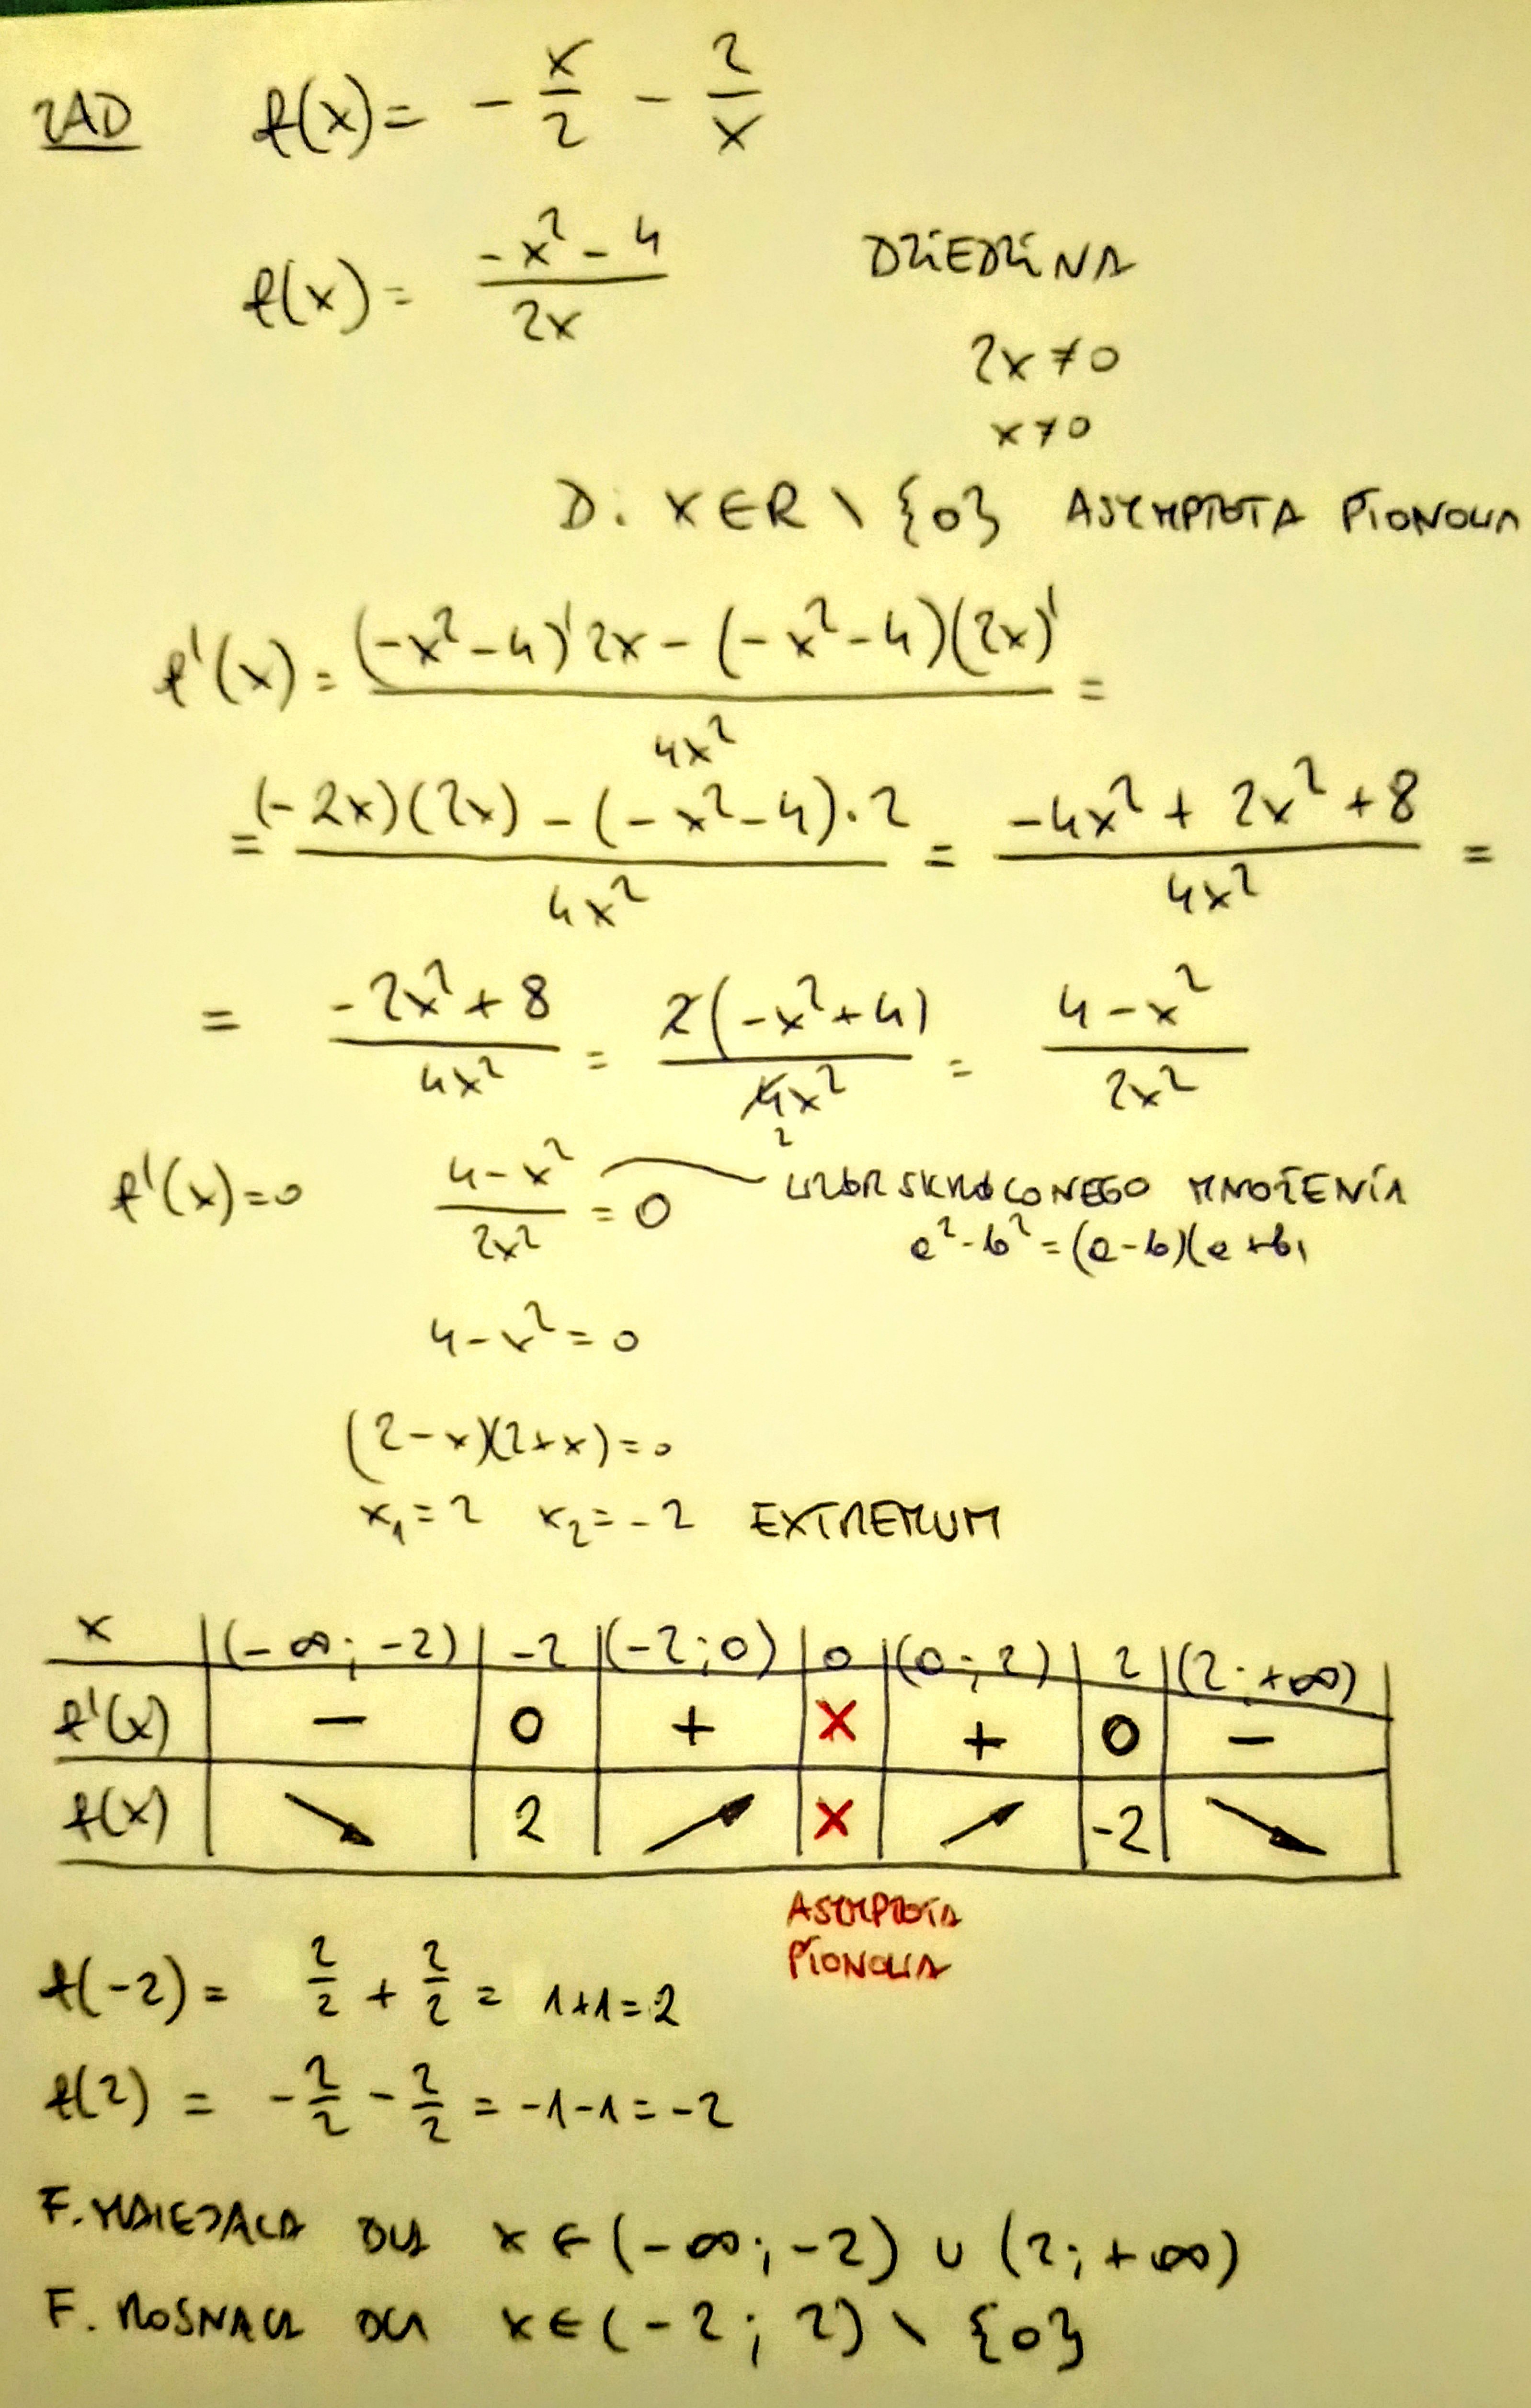 ZAD f(x) = - x/2 - 2/x
f(x) = (-x² - 4)/(2x) DZIEDZINA
2x ≠ 0
x ≠ 0
D: x ∈ R \ {0} ASYMPTOTA PIONOWA
f'(x) = ((-x² - 4)' 2x - (-x² - 4)(2x)')/(4x²) =
= ((-2x)(2x) - (-x² - 4)·2)/(4x²) = (-4x² + 2x² + 8)/(4x²) =
= (-2x² + 8)/(4x²) = 2(-x² + 4)/(4x²) = (4 - x²)/(2x²)
2
f'(x) = 0 (4 - x²)/(2x²) = 0 WZÓR SKRÓCONEGO MNOŻENIA
a² - b² = (a - b)(a + b)
4 - x² = 0
(2 - x)(2 + x) = 0
x₁ = 2 x₂ = -2 EXTREMUM
x (-∞; -2) -2 (-2; 0) 0 (0; 2) 2 (2; +∞)
f'(x) - 0 + × + 0 -
f(x) ↘ 2 ↗ × ↗ -2 ↘
ASYMPTOTA
PIONOWA
f(-2) = 2/2 + 2/2 = 1+1 = 2
f(2) = -2/2 - 2/2 = -1-1 = -2
F. MALEJĄCA DLA x ∈ (-∞; -2) ∪ (2; +∞)
F. ROSNĄCA DLA x ∈ (-2; 2) \ {0}